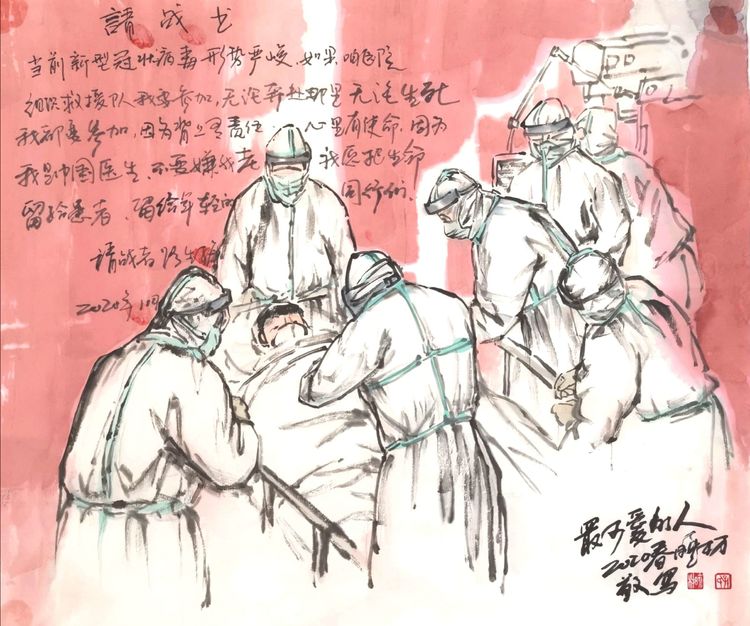 請战书
当前新型冠状病毒形势严峻,如果咱医院
组织救援队我要参加,无论奔赴那里无论生死
我都要参加,因为背上有责任 心里有使命.因为
我是中国医生.不要嫌我老 我愿把生命
留给患者.留给年轻的 同行们.
請战者
2020年1月
最可爱的人
2020春
敬写